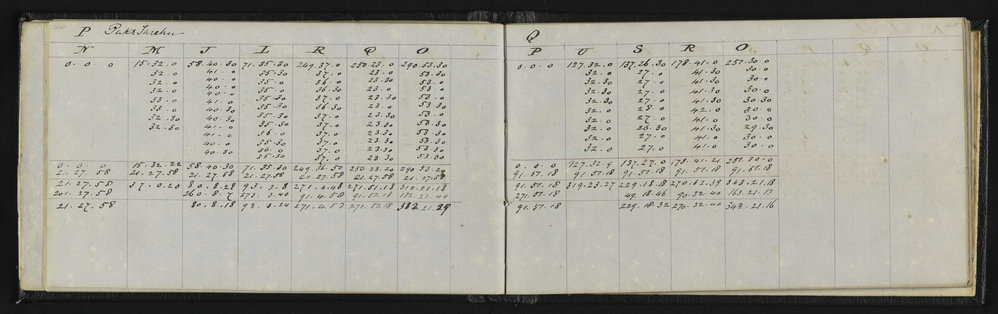 P
N M J I R Q O
0.0.0 15.32.0 58.40.30 71.35.30 249.37.0 250.23.0 290.53.30
32.0 41.0 35.30 37.0 23.0 53.30
32.0 40.0 35.0 36.0 23.30 53.0
32.0 40.0 35.0 36.30 23.0 53.0
33.0 41.0 35.30 37.0 23.0 53.0
33.0 40.30 35.30 36.30 23.0 53.0
32.30 40.30 35.30 37.0 23.30 53.0
32.30 41.0 35.30 37.0 23.30 53.0
41.0 36.0 37.0 23.30 53.0
40.0 35.30 37.0 23.30 53.0
40.30 36.0 37.0 23.30 53.30
35.30 37.0 23.30 53.30
0.0.0 15.32.22 58.40.30 71.35.30 249.36.55 250.23.20 290.53.21
21.27.58 21.27.58 21.27.58 21.27.58 21.27.58 21.27.58 21.27.58
21.27.58 37.0.20 80.8.28 93.3.8 271.4.48 271.51.18
201.27.58 260.8.7 273.3.40 91.4.58 91.51.18
21.27.58 80.8.18 93.3.24 271.4.53
Q
P U S R O
0.0.0 127.32.0 137.26.30 178.41.0 257.30.0
32.0 27.0 41.30 30.0
32.30 27.0 41.30 30.0
32.0 27.0 41.30 30.0
32.30 27.0 41.0 30.30
32.0 28.0 42.0 30.0
32.0 27.0 41.0 30.0
32.0 26.30 41.30 29.30
32.0 27.0 41.0 30.0
32.0 27.0 41.0 30.0
0.0.0 127.32.9 137.27.0 178.41.21 257.30.0
91.51.18 91.51.18 91.51.18 91.51.18 91.51.18
91.51.18 219.23.27 229.18.18 270.32.39
271.51.18 49.18.46 90.32.40
91.51.18 229.18.32 270.32.40 348.21.16